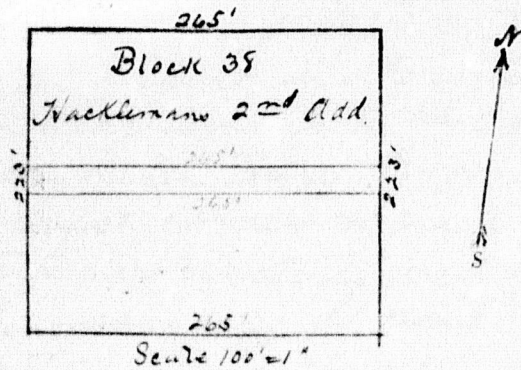 265'
Block 38
Hacklemans 2nd Add.
N
223'
265'
223'
265'
S
265'
Scale 100'=1"